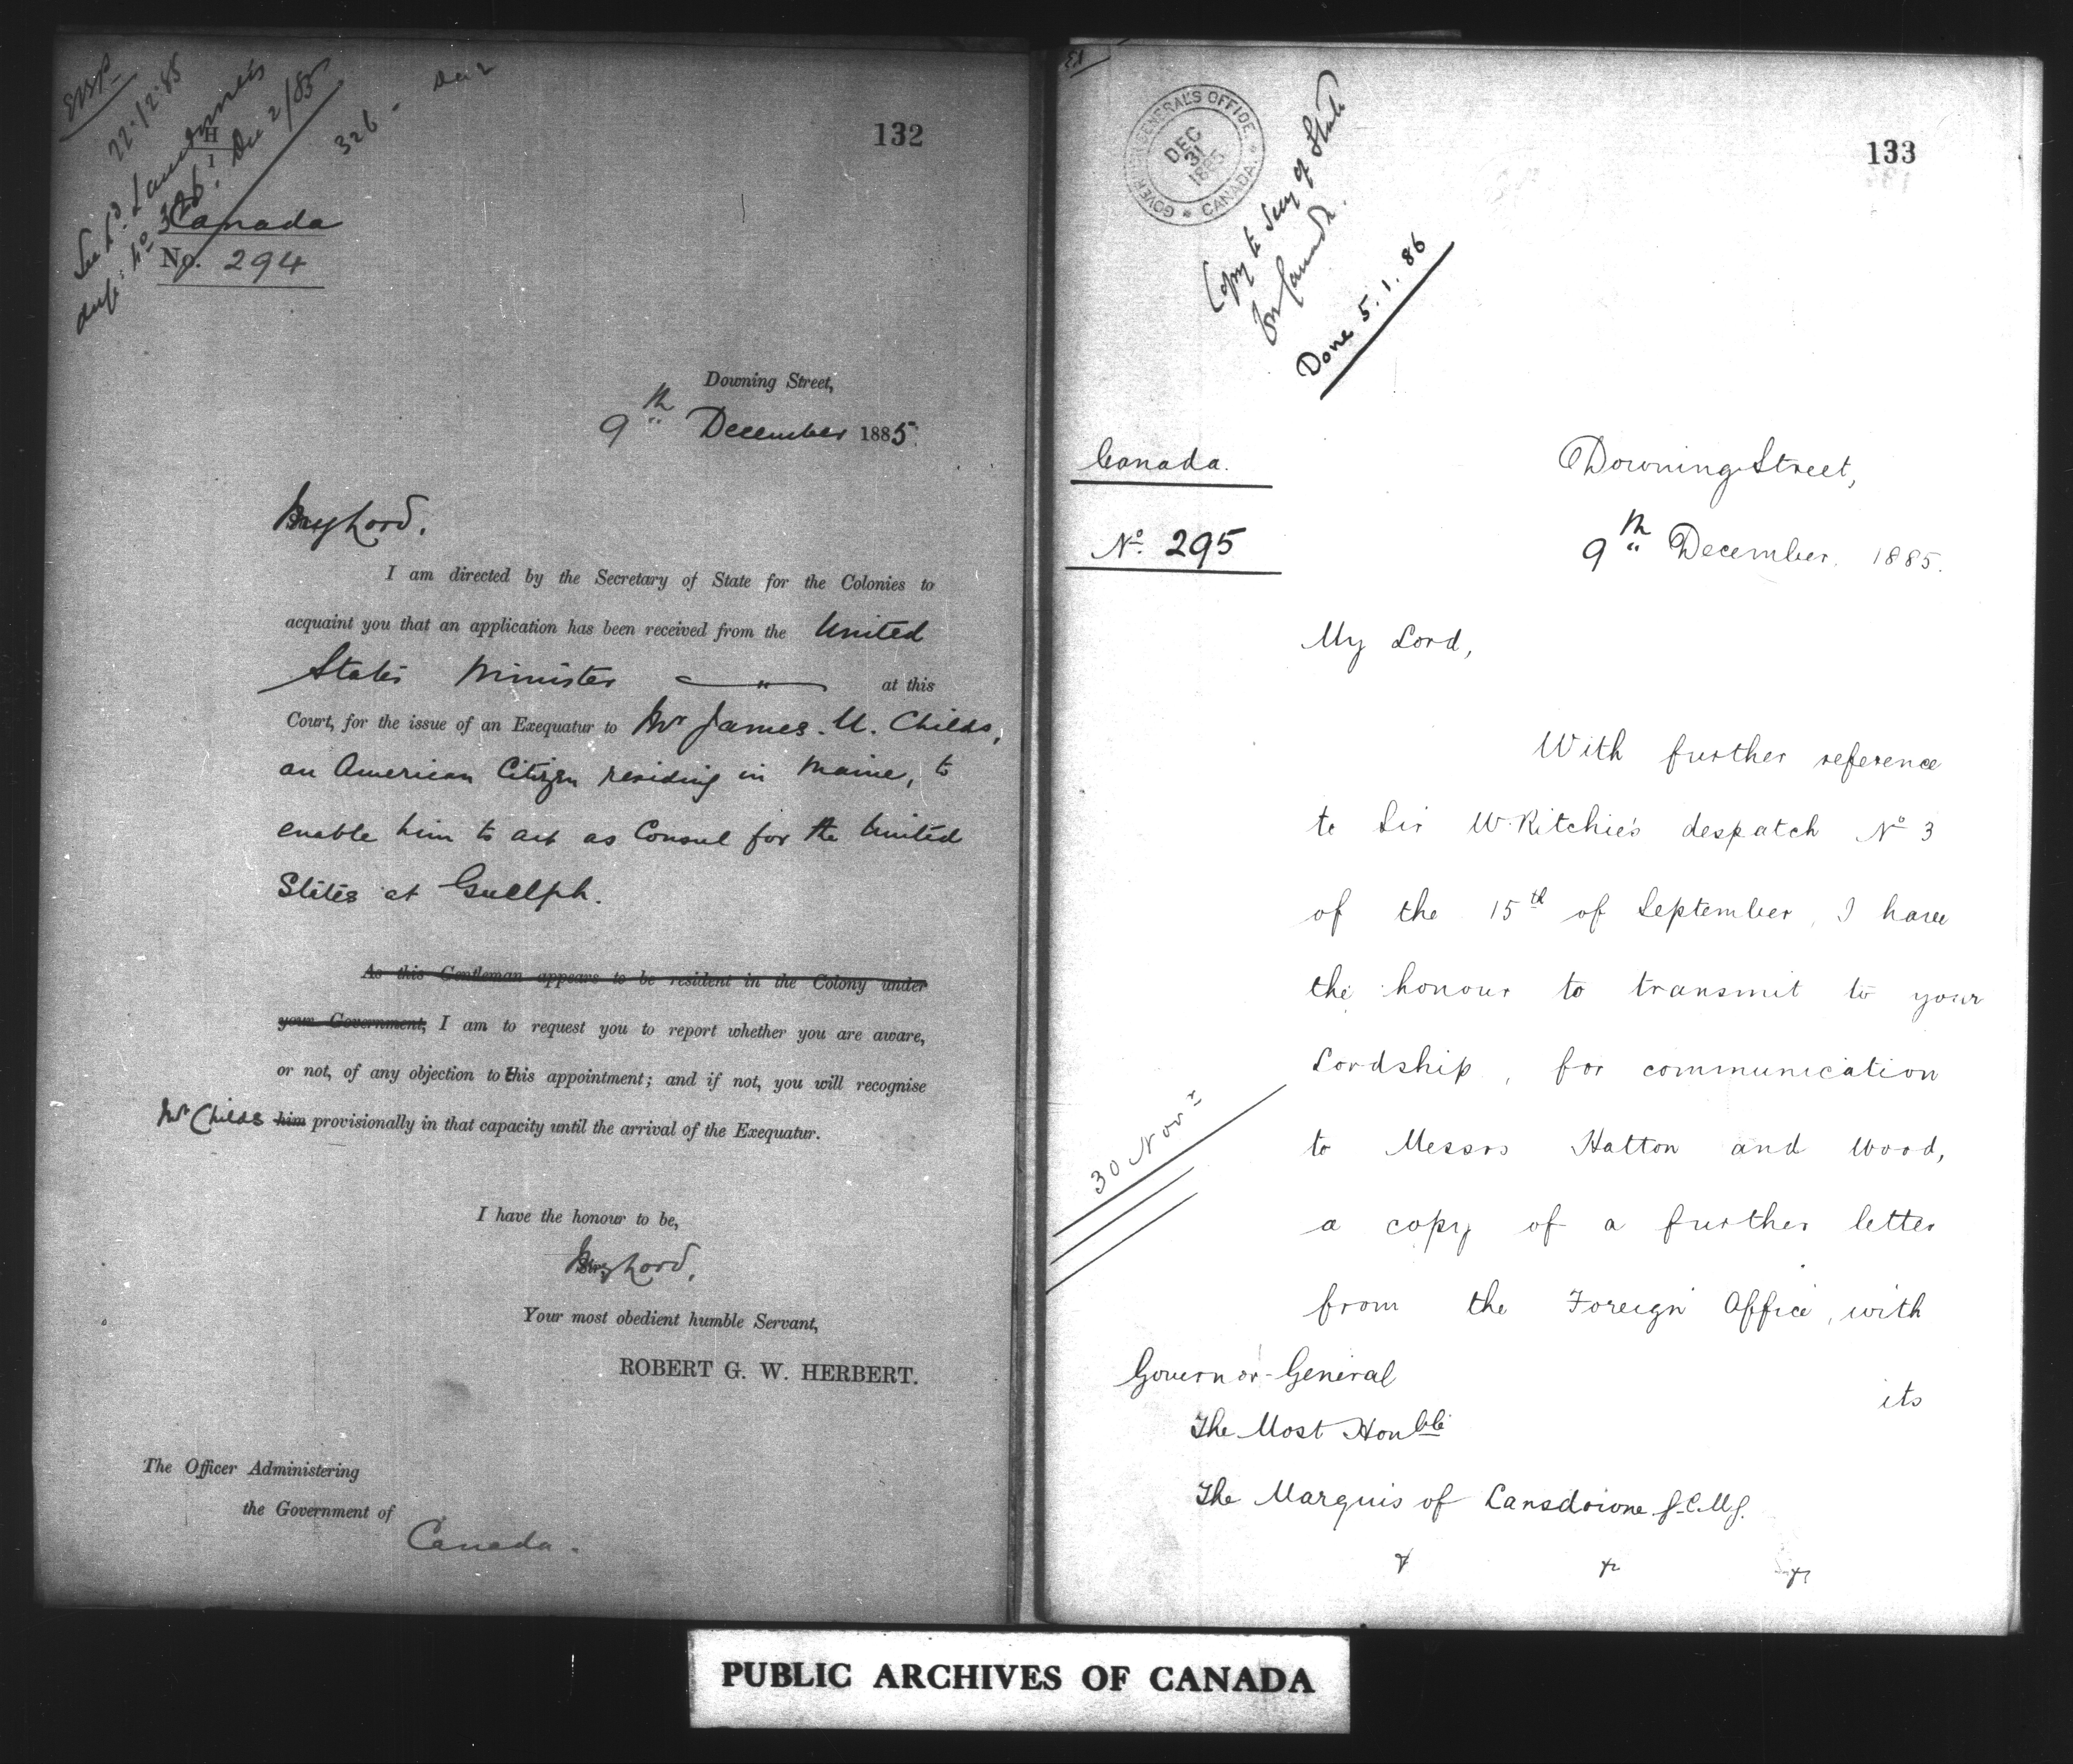 22/12/85
See Ld Lansdowne's
desp: No 326: Dec 2/85
326 - Dec 2
132
H
1
Canada
No. 294
Downing Street,
9th December 1885.
My Lord,
I am directed by the Secretary of State for the Colonies to
acquaint you that an application has been received from the United
States Minister at this
Court, for the issue of an Exequatur to Mr James. U. Childs,
an American Citizen residing in Maine, to
enable him to act as Consul for the United
States at Guelph.
As this Gentleman appears to be resident in the Colony under
your Government, I am to request you to report whether you are aware,
or not, of any objection to this appointment; and if not, you will recognise
Mr Childs him provisionally in that capacity until the arrival of the Exequatur.
I have the honour to be,
My Lord,
Your most obedient humble Servant,
ROBERT G. W. HERBERT.
The Officer Administering
the Government of
Canada.
GOVERNOR GENERAL'S OFFICE
DEC
31
1885
* CANADA. *
Copy to Secy of State
for Canada.
Done 5.1.86
133
Canada.
No. 295
Downing Street,
9th December. 1885.
My Lord,
With further reference
to Sir W. Ritchie's despatch No 3
of the 15th of September, I have
the honour to transmit to your
Lordship, for communication
30 Novr
to Messrs Hatton and Wood,
a copy of a further letter
from the Foreign Office, with
its
Governor-General
The Most Honble
The Marquis of Lansdowne G.C.M.G.
PUBLIC ARCHIVES OF CANADA